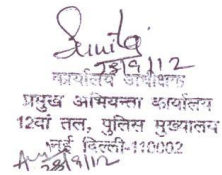 Sunita
28/9/12
कार्यालय अधीक्षक
प्रमुख अभियन्ता कार्यालय
12वां तल, पुलिस मुख्यालय
नई दिल्ली-110002
28/9/12